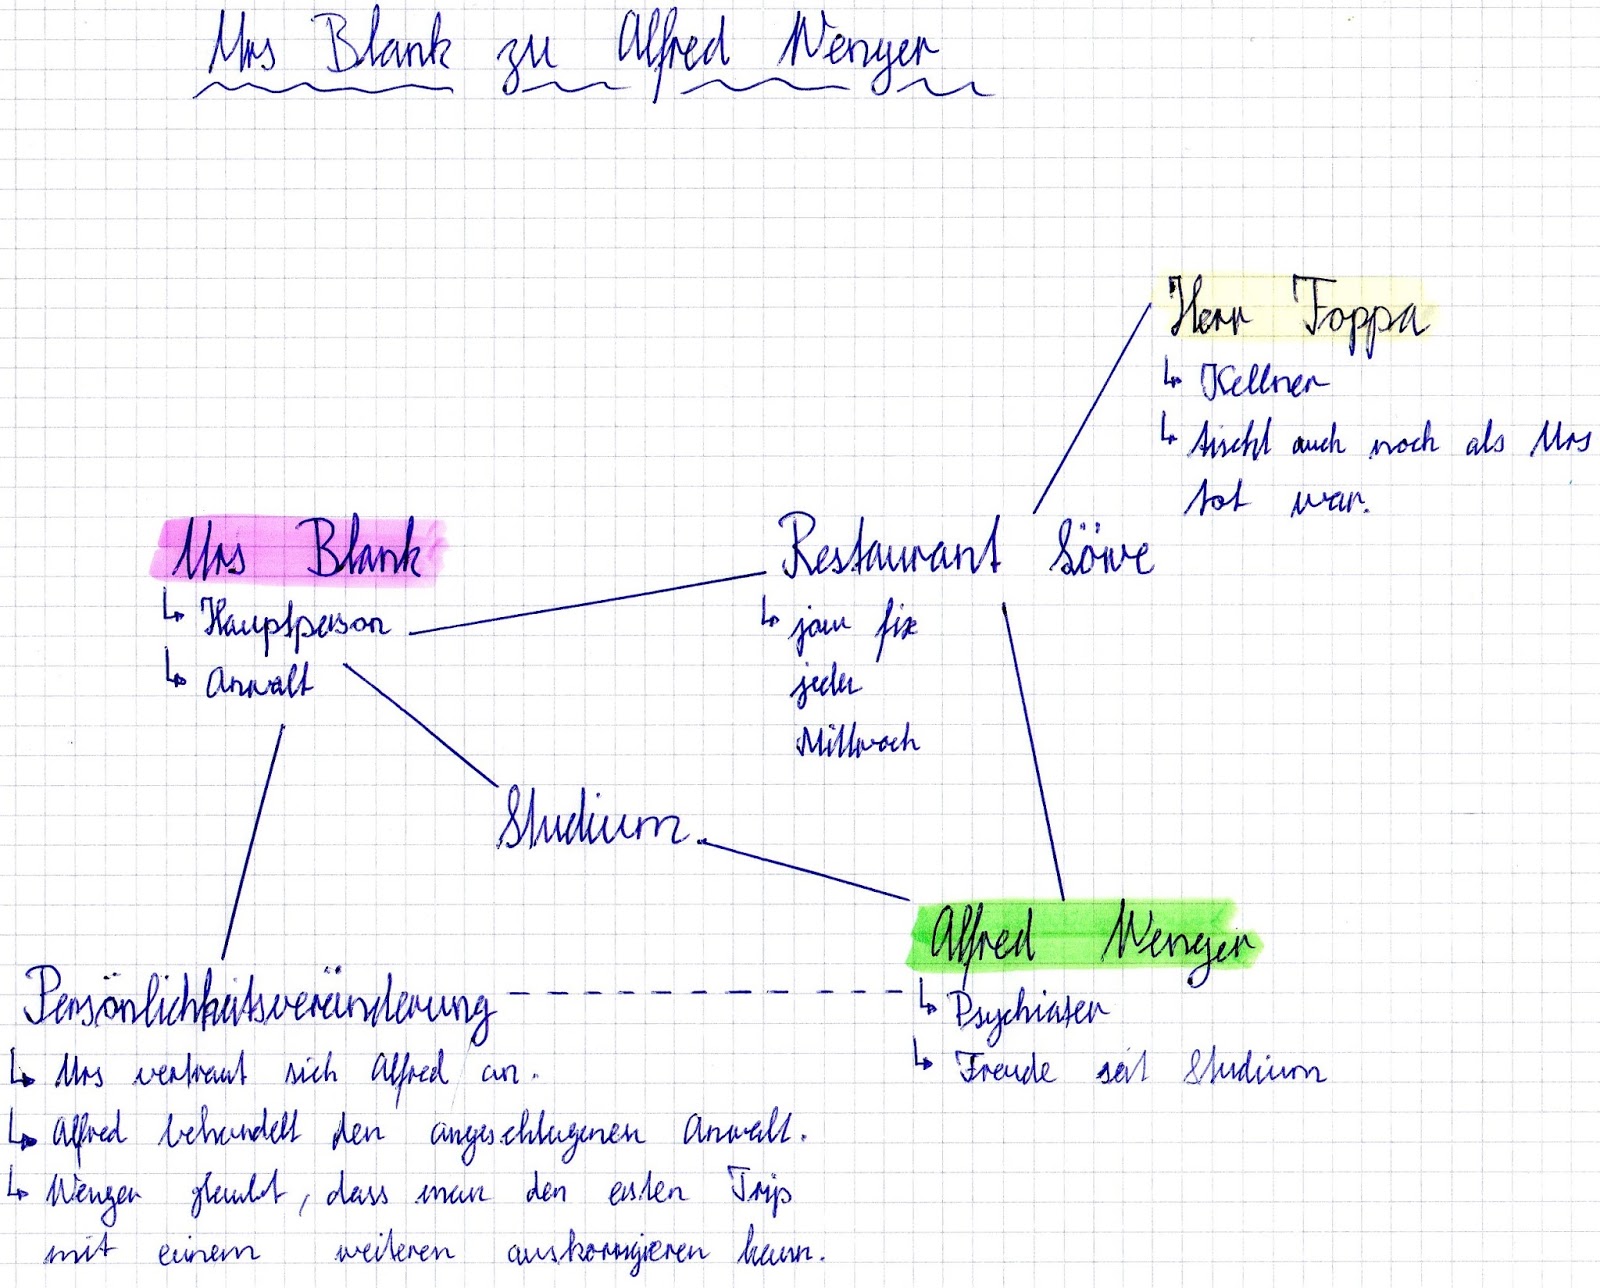 Urs Blank zu Alfred Wenger
Herr Foppa
↳ Kellner
↳ tischt auch noch als Urs
tot war.
Urs Blank
↳ Hauptperson
↳ Anwalt
Restaurant Löwe
↳ jour fix
jeder
Mittwoch
Studium
Alfred Wenger
↳ Psychiater
↳ Freude seit Studium
Persönlichkeitsveränderung
↳ Urs vertraut sich Alfred an.
↳ Alfred behandelt den angeschlagenen Anwalt.
↳ Wenger glaubt, dass man den ersten Trip
mit einem weiteren auskorrigieren kann.